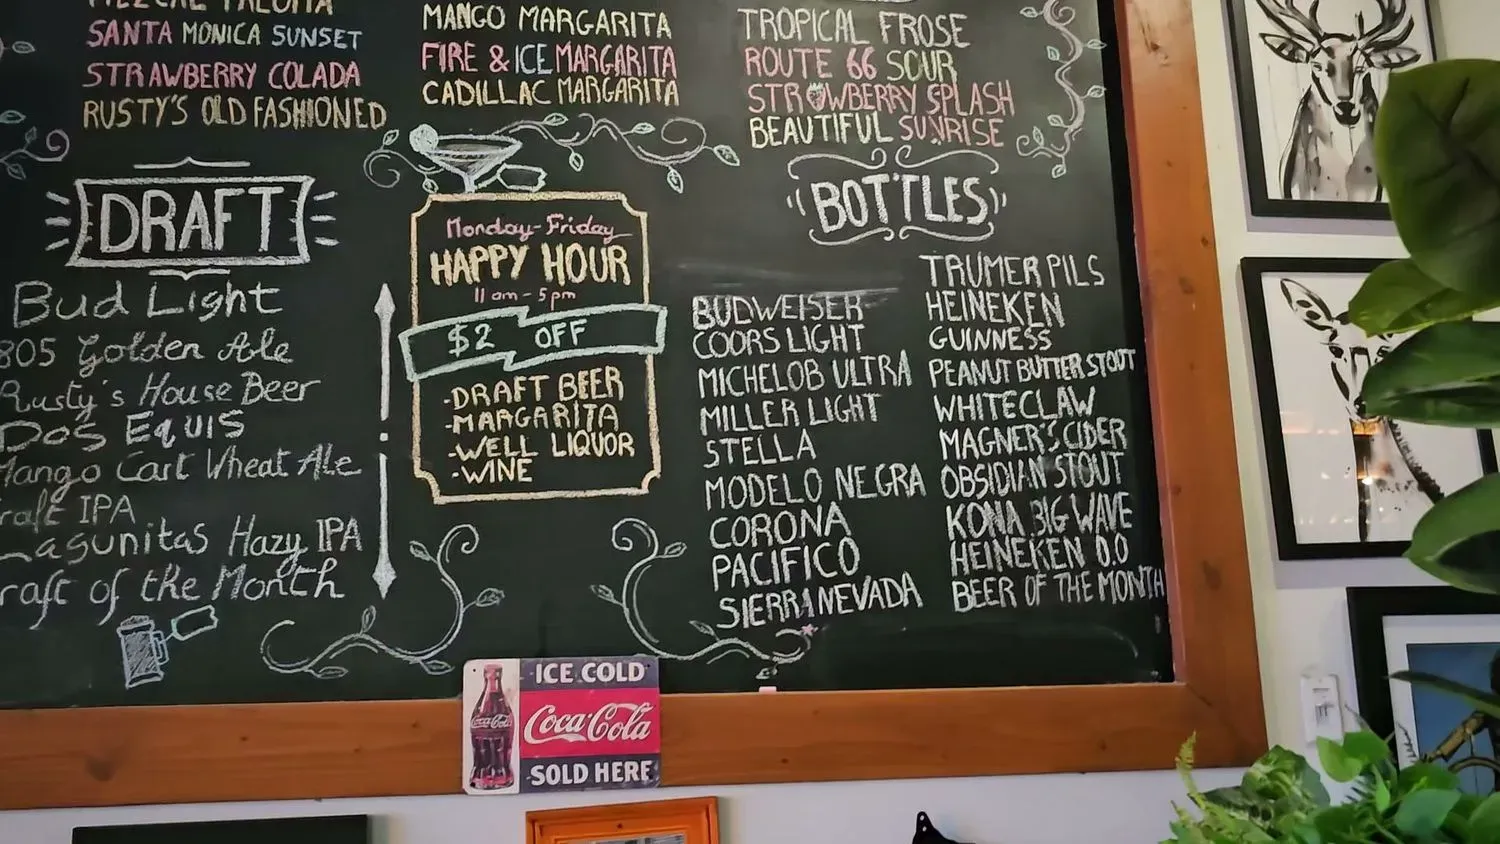 MEZCAL PALOMA
SANTA MONICA SUNSET
STRAWBERRY COLADA
RUSTY'S OLD FASHIONED
MANGO MARGARITA
FIRE & ICE MARGARITA
CADILLAC MARGARITA
TROPICAL FROSE
ROUTE 66 SOUR
STRWBERRY SPLASH
BEAUTIFUL SUNRISE
DRAFT
Bud Light
805 Golden Ale
Rusty's House Beer
Dos Equis
Mango Cart Wheat Ale
raft IPA
Lagunitas Hazy IPA
raft of the Month
Monday-Friday
HAPPY HOUR
11am-5pm
$2 OFF
-DRAFT BEER
-MARGARITA
-WELL LIQUOR
-WINE
BOTTLES
BUDWEISER
COORS LIGHT
MICHELOB ULTRA
MILLER LIGHT
STELLA
MODELO NEGRA
CORONA
PACIFICO
SIERRA NEVADA
TRUMER PILS
HEINEKEN
GUINNESS
PEANUT BUTTER STOUT
WHITECLAW
MAGNER'S CIDER
OBSIDIAN STOUT
KONA BIG WAVE
HEINEKEN 0.0
BEER OF THE MONTH
ICE COLD
Coca-Cola
SOLD HERE
Coca-Cola